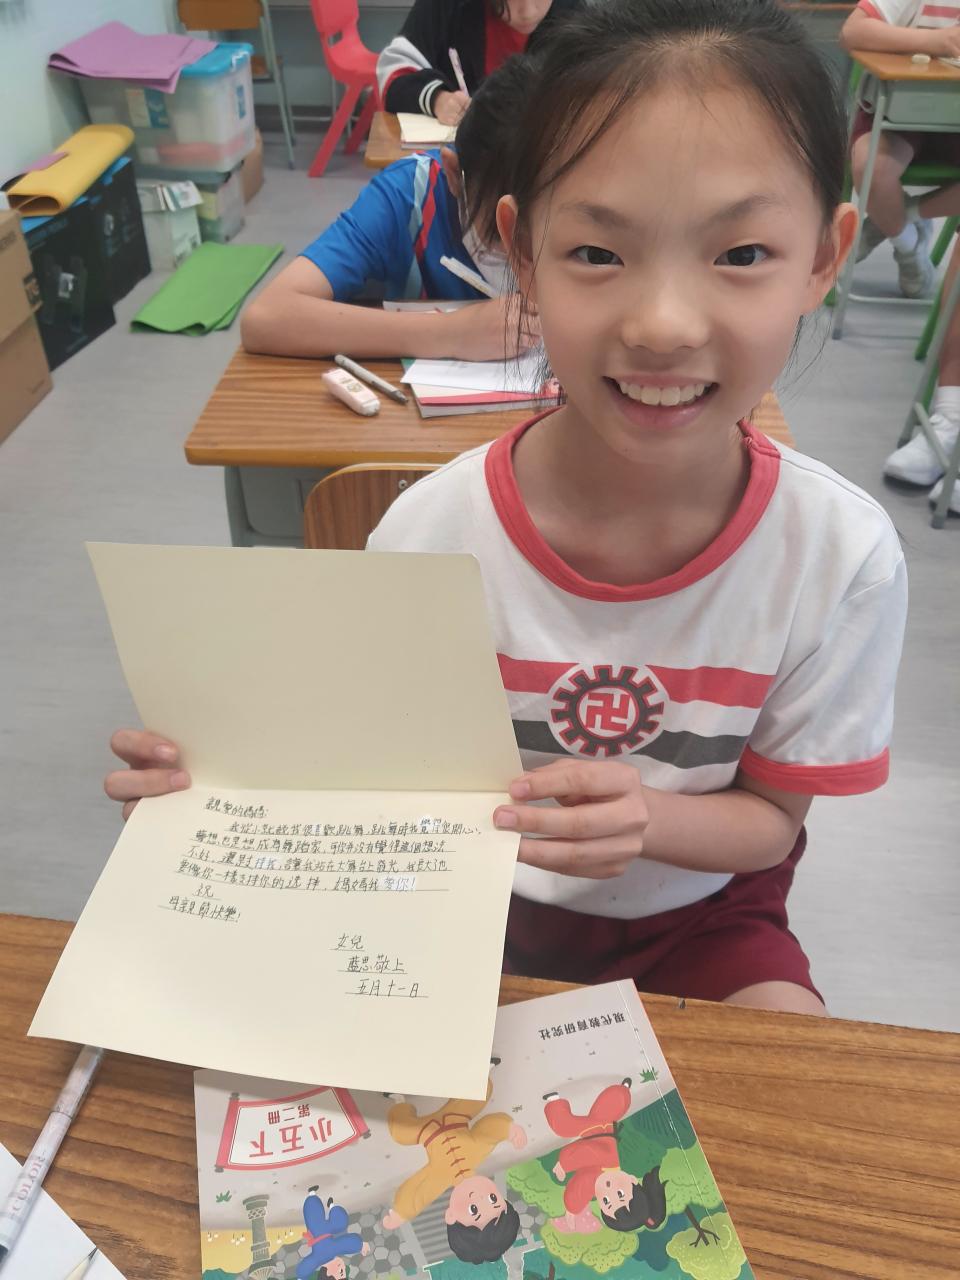 親愛的媽媽:
我從小就說我很喜歡跳舞,跳舞時我覺得很開心,
夢想也是想成為舞蹈家,可你并沒有覺得這個想法
不好,還是支持我,讓我站在大舞台上發光,我長大也
要像你一樣支持你的選擇,媽媽我愛你!
祝
母親節快樂!
女兒
藍思敬上
五月十一日
現代教育研究社
小五下
第二冊